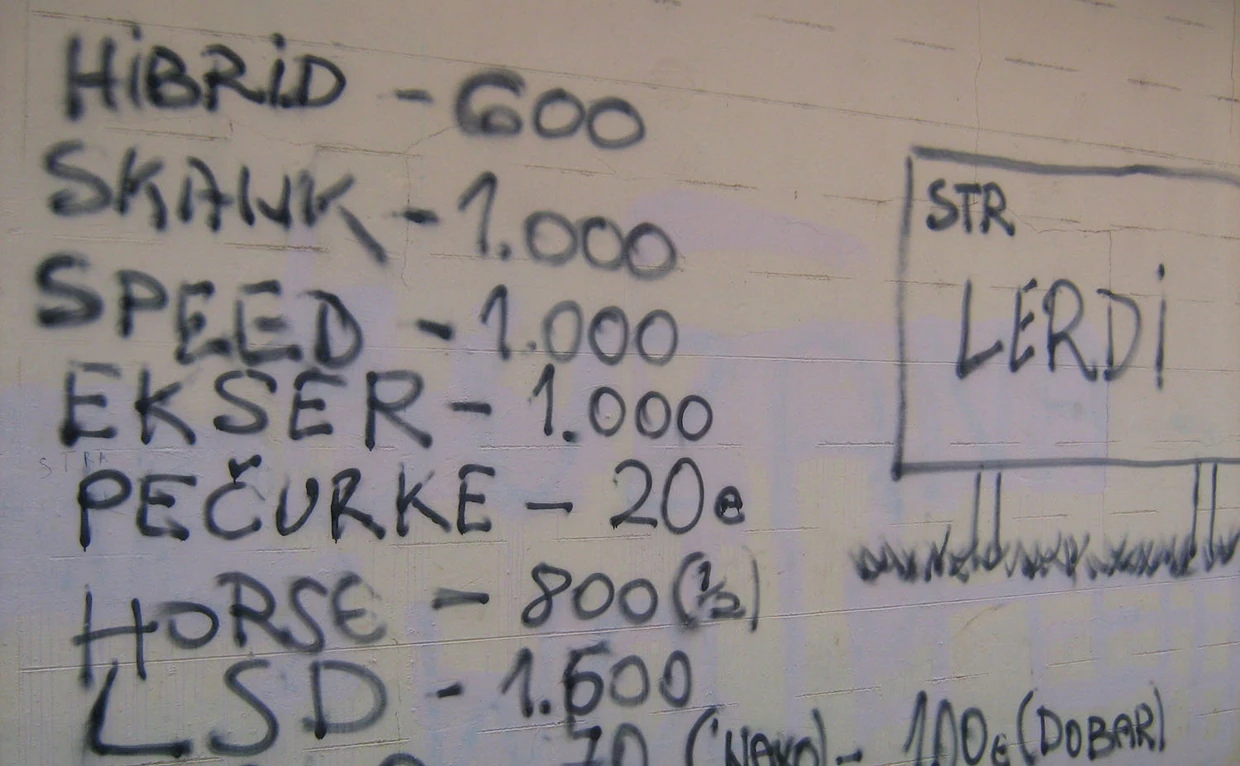 HiBRiD - 600
SKANK - 1.000
SPEED - 1.000
EKSER - 1.000
PEČURKE - 20e
HORSE - 800 (1/2)
LSD - 1.500
100e (DOBAR)
STR
LERDi